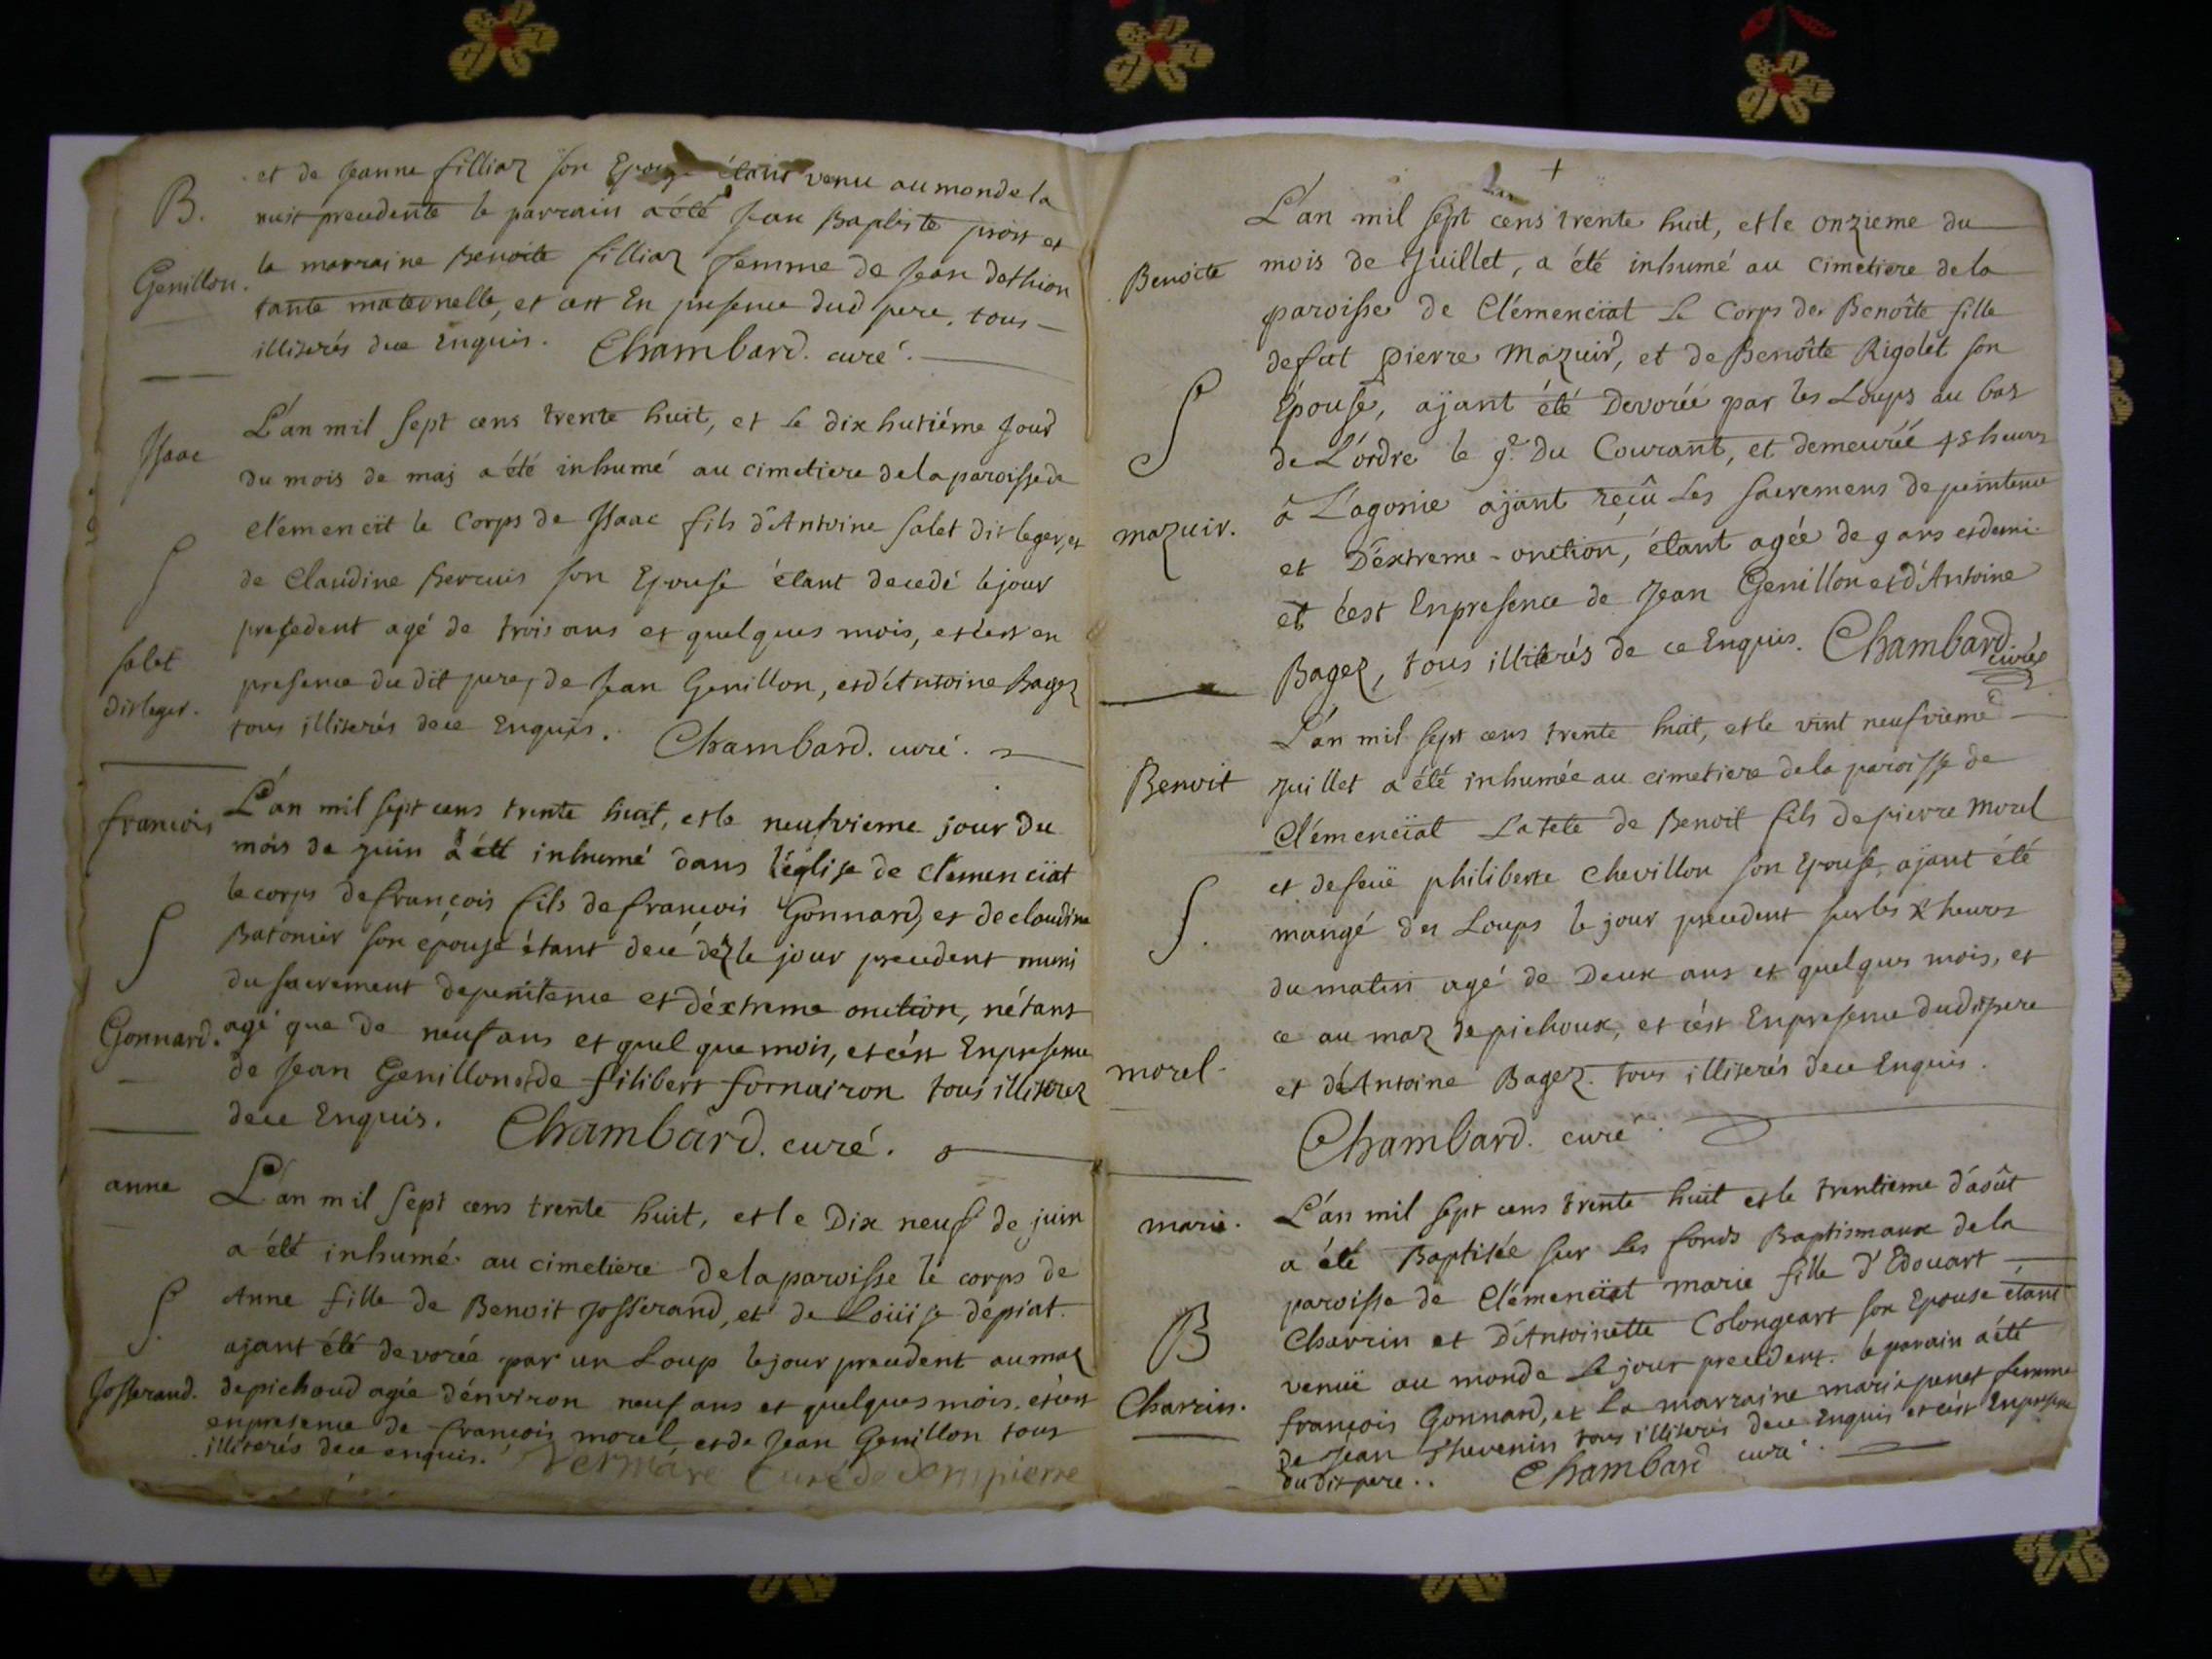 et de Jeanne filliaz son Epouse étant venu au monde la
B.
nuit precedente le parrain a été Jean Baptiste et
la marraine Benoite filliaz femme de Jean dethion
Genillon.
tante maternelle, et c'est En presence dud pere, tous
illiterés de ce Enquis. Chambard. curé.
L'an mil sept cens trente huit, et le dix hutiéme Jour
Isaac
du mois de maj a été inhumé au cimetiere de la paroisse de
clémencït le Corps de Isaac fils d'Antoine salet dit leger, et
S
de Claudine son Epouse étant decedé le jour
precedent agé de trois ans et quelques mois, et c'est en
salet
presence du dit pere, de Jean Genillon, et d'Antoine Bagez
dit leger.
tous illiterés de ce Enquis. Chambard. curé.
francois
L'an mil sept cens trente huit, et le neufvieme jour du
mois de juin a été inhumé dans l'église de clémencïat
le corps de françois fils de françois Gonnard, et de claudine
S
Batonier son épouse étant decédez le jour precedent muni
du sacrement de penitence et d'éxtreme onction, n'étant
Gonnard.
agé que de neuf ans et quel que mois, et c'est Enpresence
de Jean Genillon et de filibert fornairon tous illiterez
de ce Enquis. Chambard. curé.
anne
L'an mil sept cens trente huit, et le Dix neuf de juin
a été inhumé au cimetiere de la paroisse le corps de
S.
Anne fille de Benoit Josserand, et de Loüise depiat
ajant été devorée par un Loup le jour precedent au maz
Josserand.
de pichoud agée d'énviron neuf ans et quelques mois. et c'est
enpresence de francois morel, et de Jean Genillon tous
illiterés de ce enquis. Vermare Curé de dompierre
+
L'an mil sept cens trente huit, et le onzieme du
Benoite
mois de Juillet, a été inhumé au cimetiere de la
paroisse de Clémencïat Le Corps de Benoîte fille
de fut pierre Mazuir, et de Benoîte Rigolet son
S
Épouse, ajant été Devorée par les Loups au bas
de L'órdre le 9e. du Courant, et demeurée 48 heures
mazuir.
à L'agonie ajant reçû Les sacremens de penitence
et D'éxtreme-onction, étant agée de 9 ans et demi
et c'est Enpresence de Jean Genillon et d'Antoine
Bagez, tous illiterés de ce Enquis. Chambard
curé
L'an mil sept cens trente huit, et le vint neufvieme
Benoit
juillet a été inhumée au cimetiere de la paroisse de
Clémencïat La tete de Benoit fils de pierre Morel
et de feuë philiberte chevillon son Epouse, ajant été
S.
mangé des Loups le jour precedent sur les heures
du matin agé de Deux ans et quelques mois, et
ce au maz de pichoux, et c'est Enpresence dudit pere
morel.
et d'Antoine Bagez. tous illiterés de ce Enquis.
Chambard. curé.
marie.
L'an mil sept cens trente huit et le trentieme d'aôut
a été Baptisée sur Les fonds Baptismaux de la
paroisse de Clémencïat marie fille d'Edouart
B
Charrin et D'Antoinette Colongeart son Epouse étant
venuë au monde le jour precedent. le parain a été
Charrin.
françois Gonnard, et La marraine marie penet femme
de Jean thevenin tous illiterés de ce Enquis et c'est Enpresence
du dit pere.. Chambard curé.